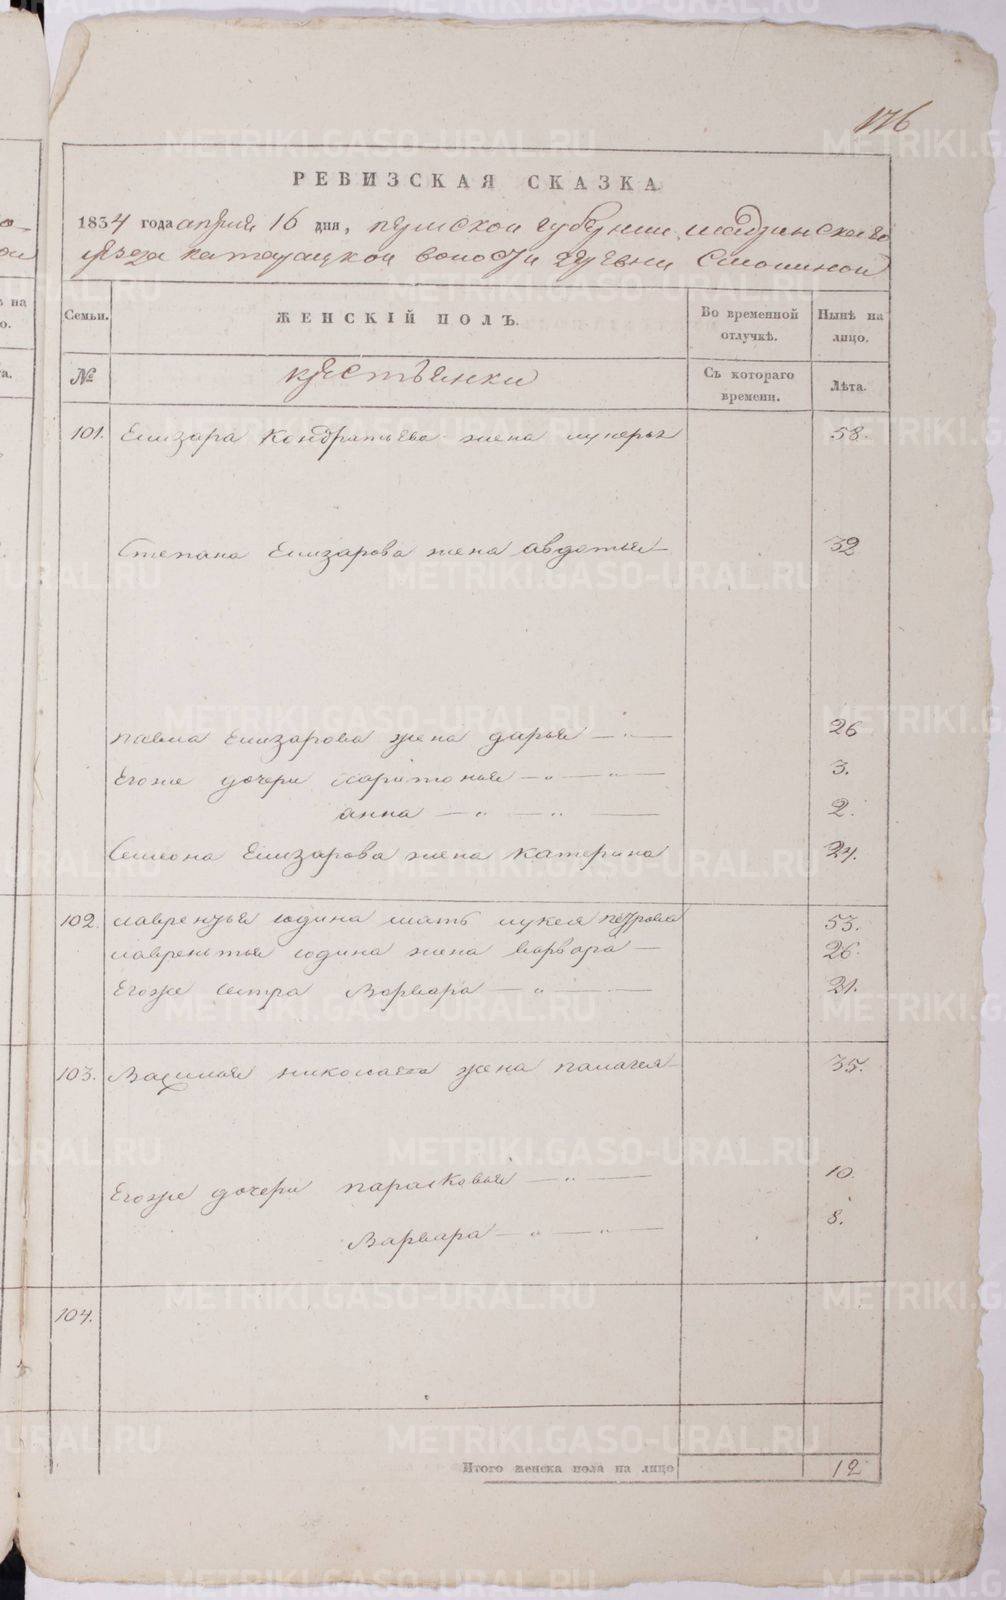 176
РЕВИЗСКАЯ СКАЗКА
1834 года апреля 16 дня, пермской губернии шадринского
уезда катайской волости деревни
Семьи. ЖЕНСКІЙ ПОЛЪ. Во временной отлучкѣ. Нынѣ на лицо.
№ крестьянки Съ котораго времени. Лѣта.
101. Елизара Кондратьева жена лукерья 58.
Степана Елизарова жена авдотья 32
павла Елизарова жена дарья 26
Егоже дочери харитонья 3.
анна 2.
Семиона Елизарова жена катерина 24.
102. лаврентья юдина мать лукея петрова 53.
лаврентья юдина жена варвара 26.
Егоже сестра Варвара 21.
103. Василья николаева жена палагея 35.
Егоже дочери парасковья 10.
Варвара 8.
104.
Итого женска пола на лицо 12
METRIKI.GASO-URAL.RU